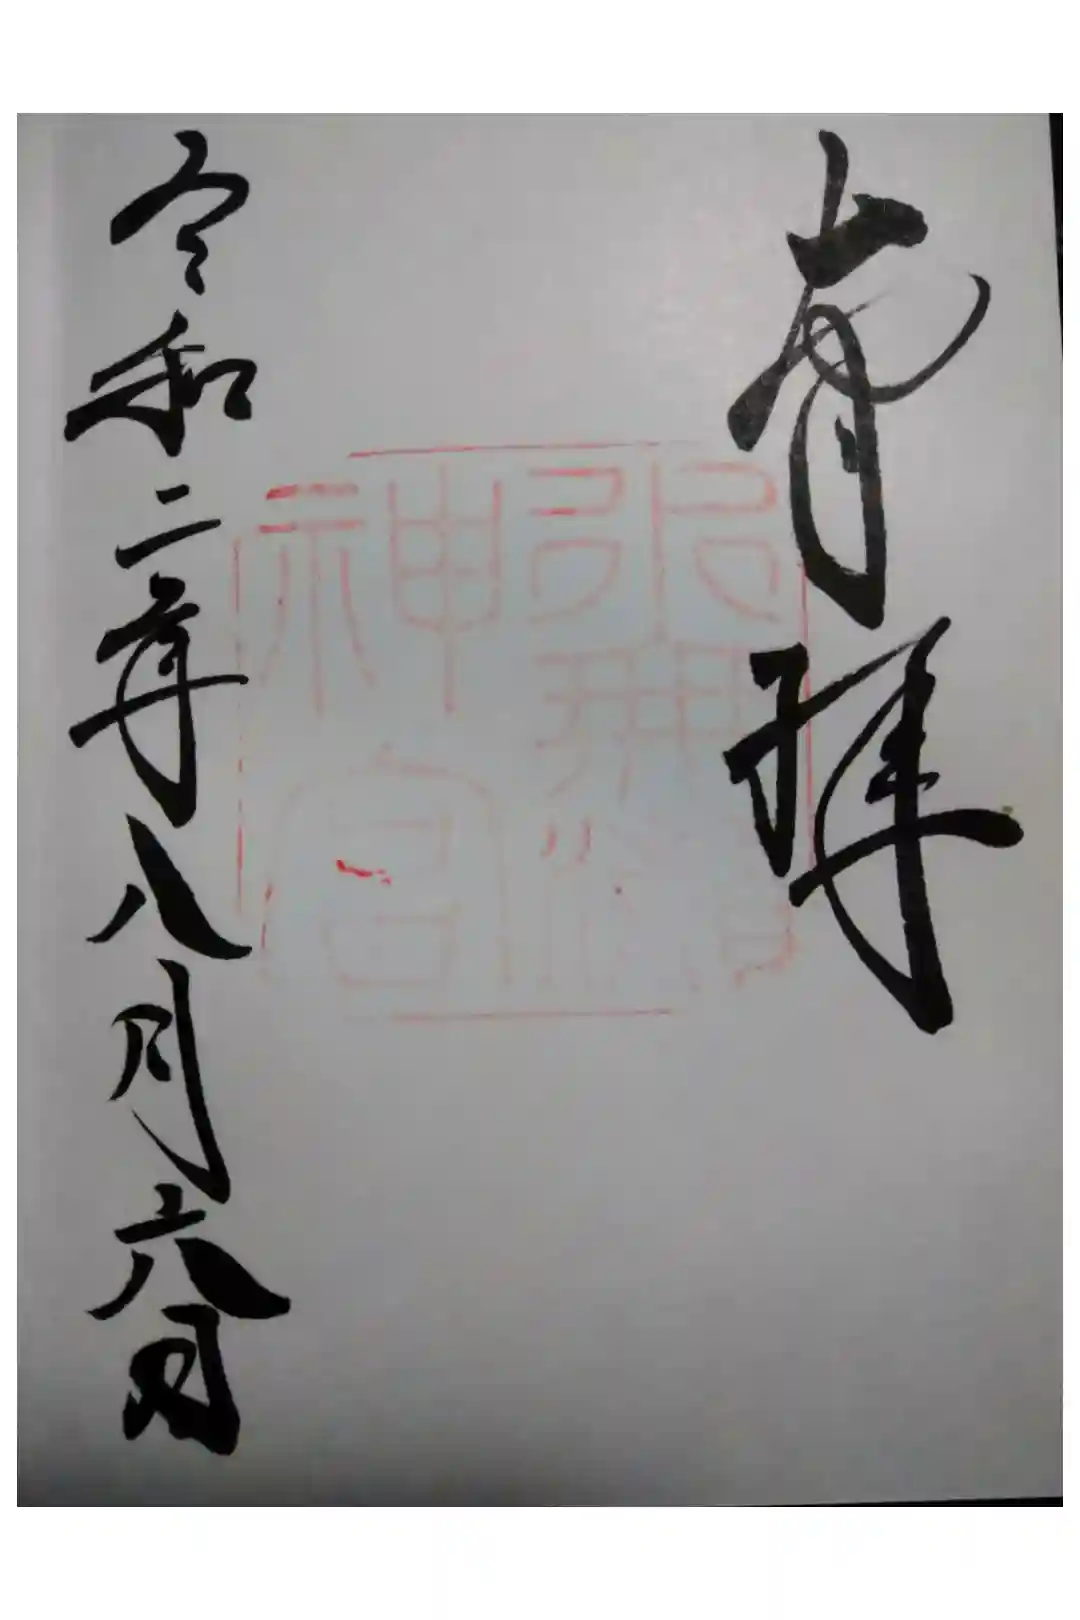 奉拝
神宮
令和二年八月六日